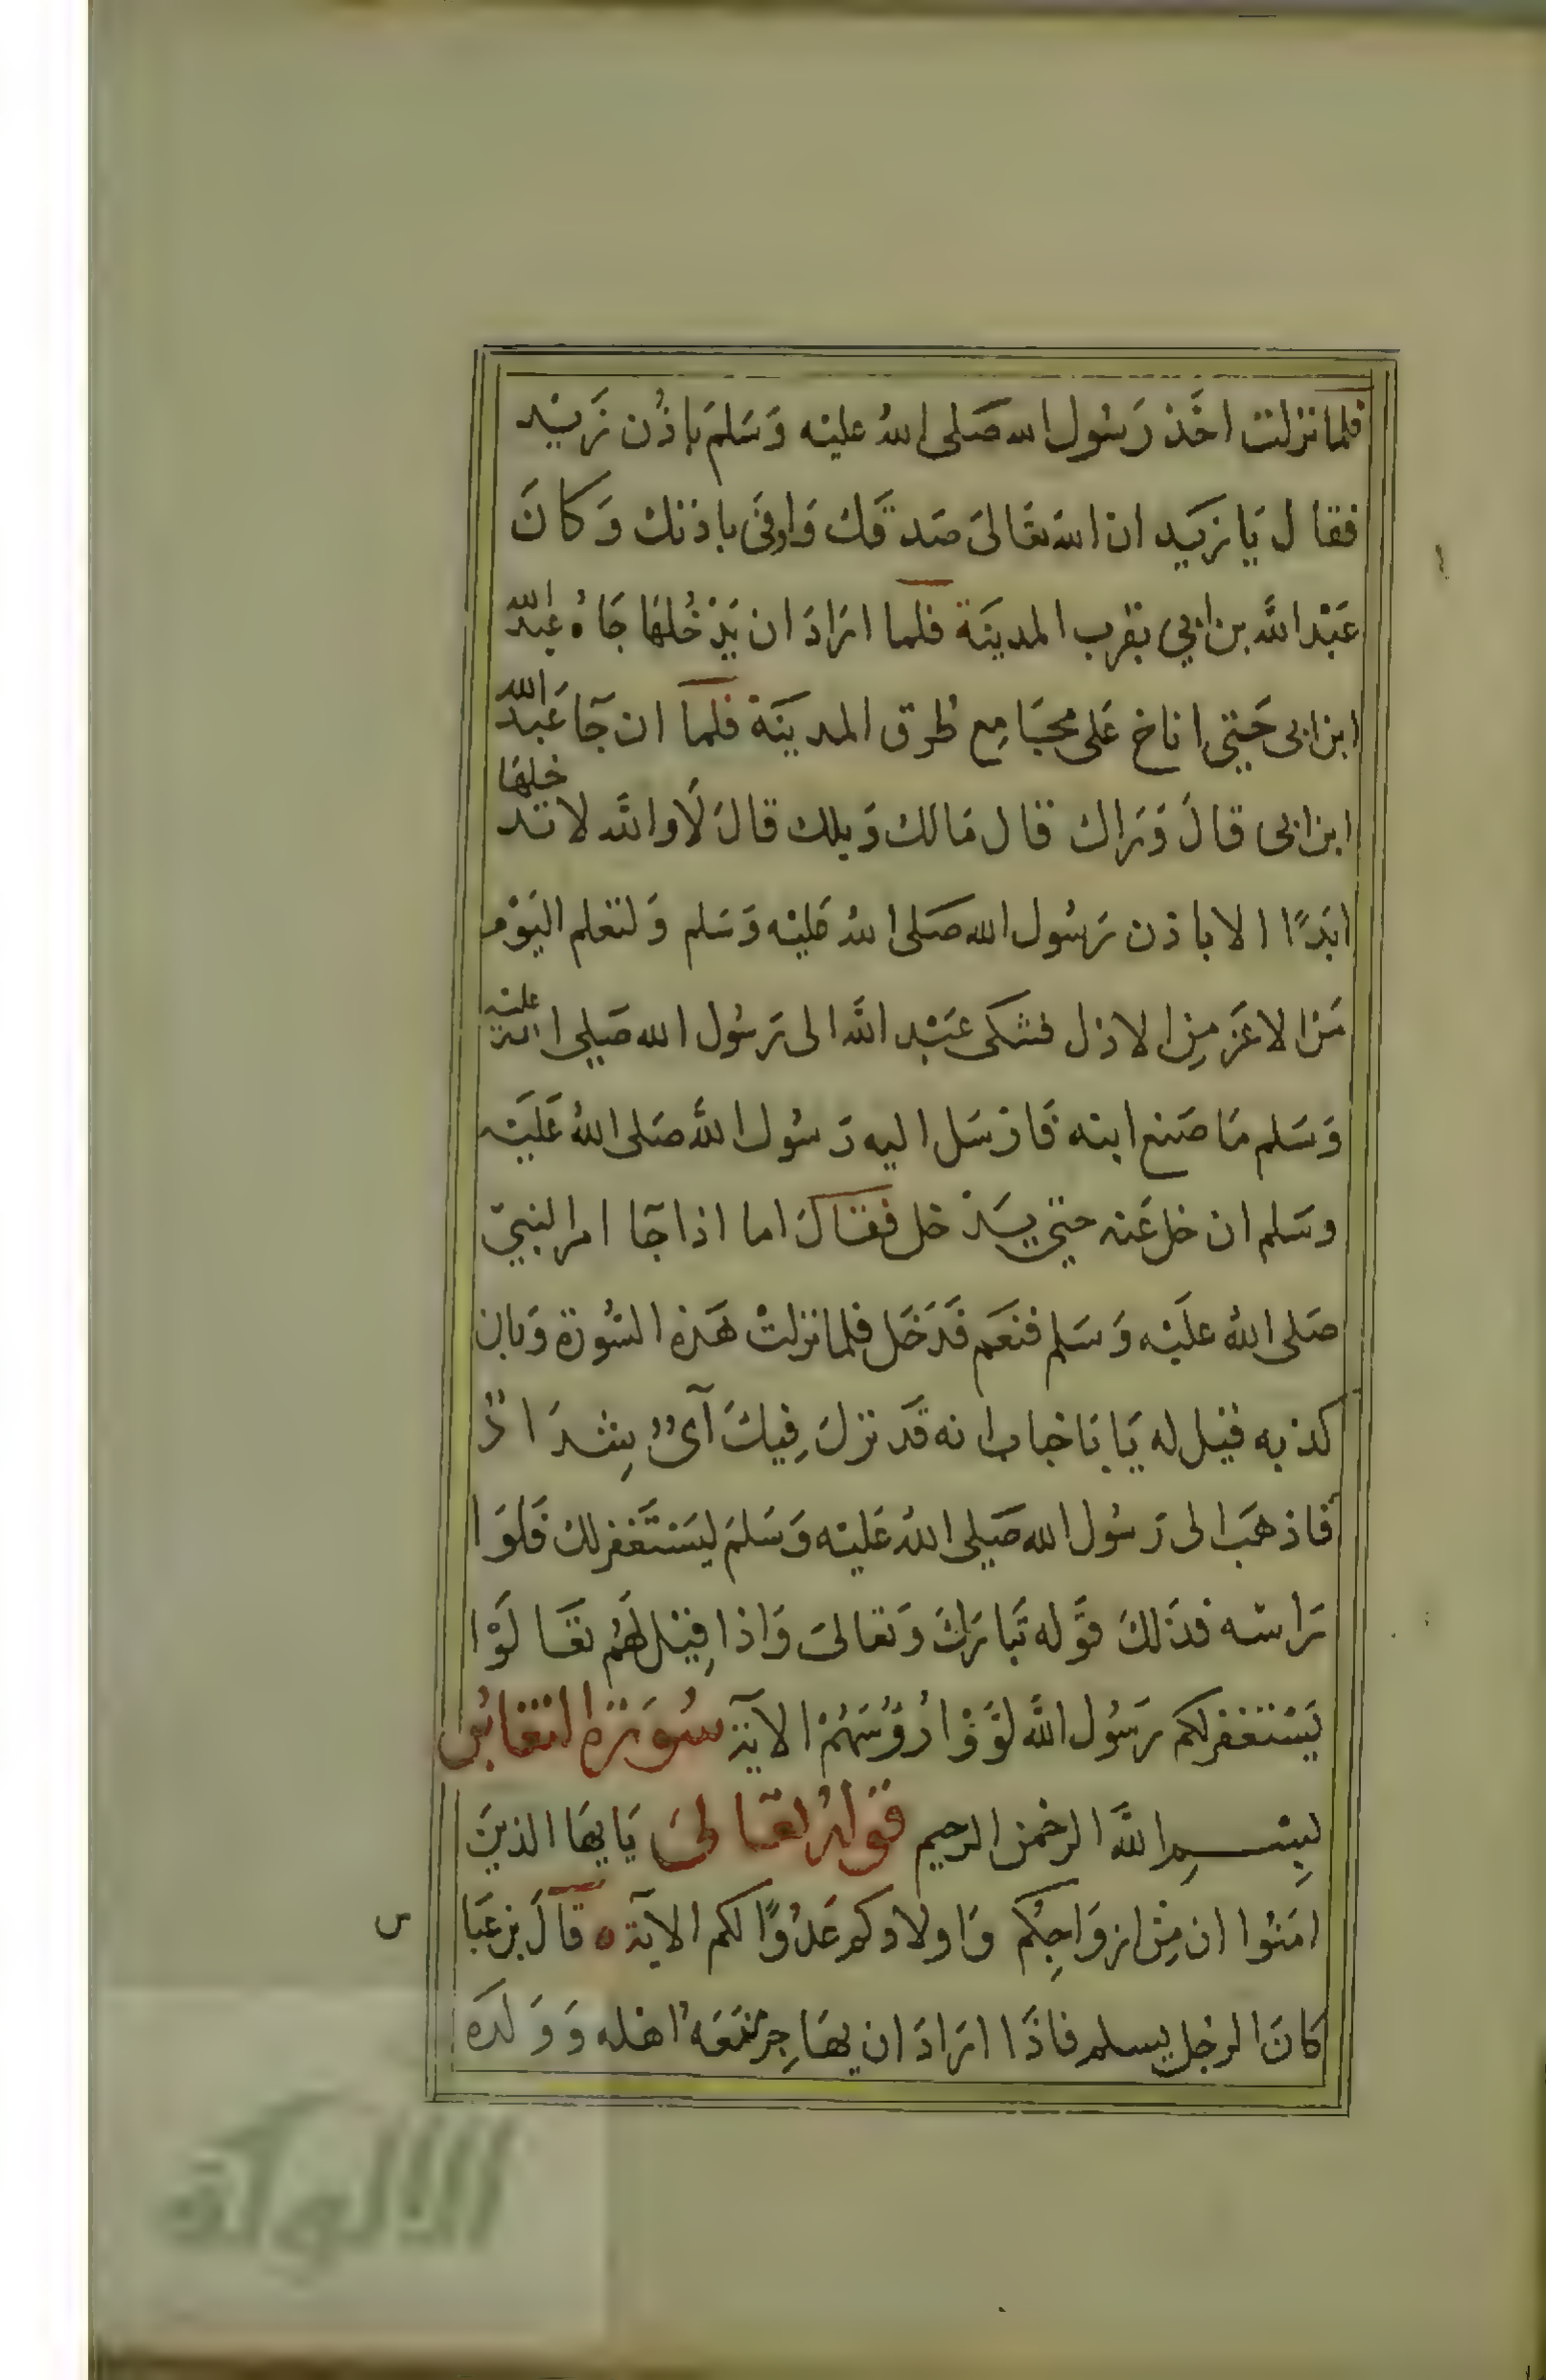 فلما نزلت اخَذ رَسُول الله صَلى اللهُ عليْه وَسَلمَ باذُن زَيْد
فقال يَا زيَد ان الله تعَالىَ صَدقَك وَاوفَى باذنك وَكانَ
عَبْد اللَّه بن ابي بقرب المدينَة فلما ارَادَ ان يَدْخُلهَا جَاهُ عبْد الله
ابن ابى حَتي اناخ عَلى مجَامِع طرق المدينَة فلما ان جَآ عَبد الله
ابن ابى قالَ وَرَاك قال مَالك وَيلك قالَ لَا واللَّه لا تدخلهَا
ابَدًا الا باذن رَسُول الله صَلى اللهُ عَليْه وَسَلم وَلتعلم اليَوْم
مَن الاعَز مِن الاذل فشكى عَبْد اللَّه الى رَسُول الله صَلي الله عليْه
وَسَلم مَا صَنع ابنه فَارْسَل اليه رَسُول اللَّه صَلى اللهُ عَليَه
وسَلم ان خل عَنه حتي يَدْخل فقَالَ اما اذا جَآ امر النبيّ
صَلى اللهُ عليَه وَسَلم فنعَم فَدَخَل فلما نزلتْ هَذه السُّورَة وَبان
كذبه فقيل له يَا بَا حباب انه قَد نزلَ فِيكَ آىٌ شِدَادٌ
فاذهَب الى رَسُول الله صَلي اللهُ عَليْه وَسَلمَ ليَسْتَغفر لك فَلوَا
رَاسَه فذَلكَ قوَله تبَاركَ وَتعَالىَ وَاذا قِيْل لَهُم تعَالَوْا
يَسْتغفر لكم رَسُول اللَّه لَوَّوْا رُؤُسَهُمْ الاَيَة سُورَة التغابُن
بِسْمِ اللَّه الرحمن الرحيم قوَلهُ تعَالىَ يَا يهَا الذينَ
امَنُوا ان مِنْ ازوَاجِكُم وَاولادكم عَدُوًا لكم الايَة ه قالَ بن عَبَا
س
كانَ الرجْل يسلم فاذَا ارَادَ ان يهَاجِر منَعَهُ اهْله وَوَلدَه
الألوكة